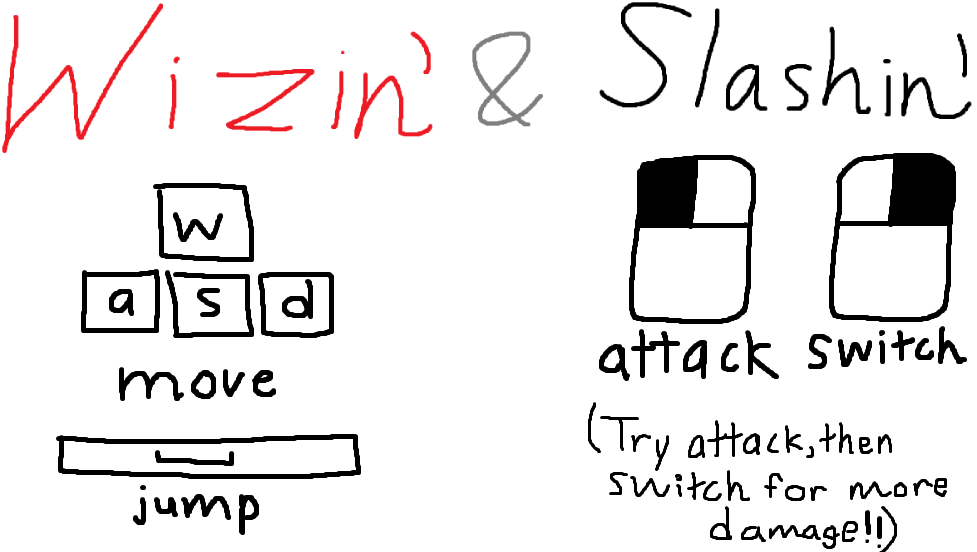 Wizin' & Slashin'
w
a s d
move
jump
attack switch
(Try attack, then
switch for more
damage!!)